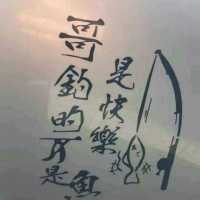 哥釣的不是魚
是快樂